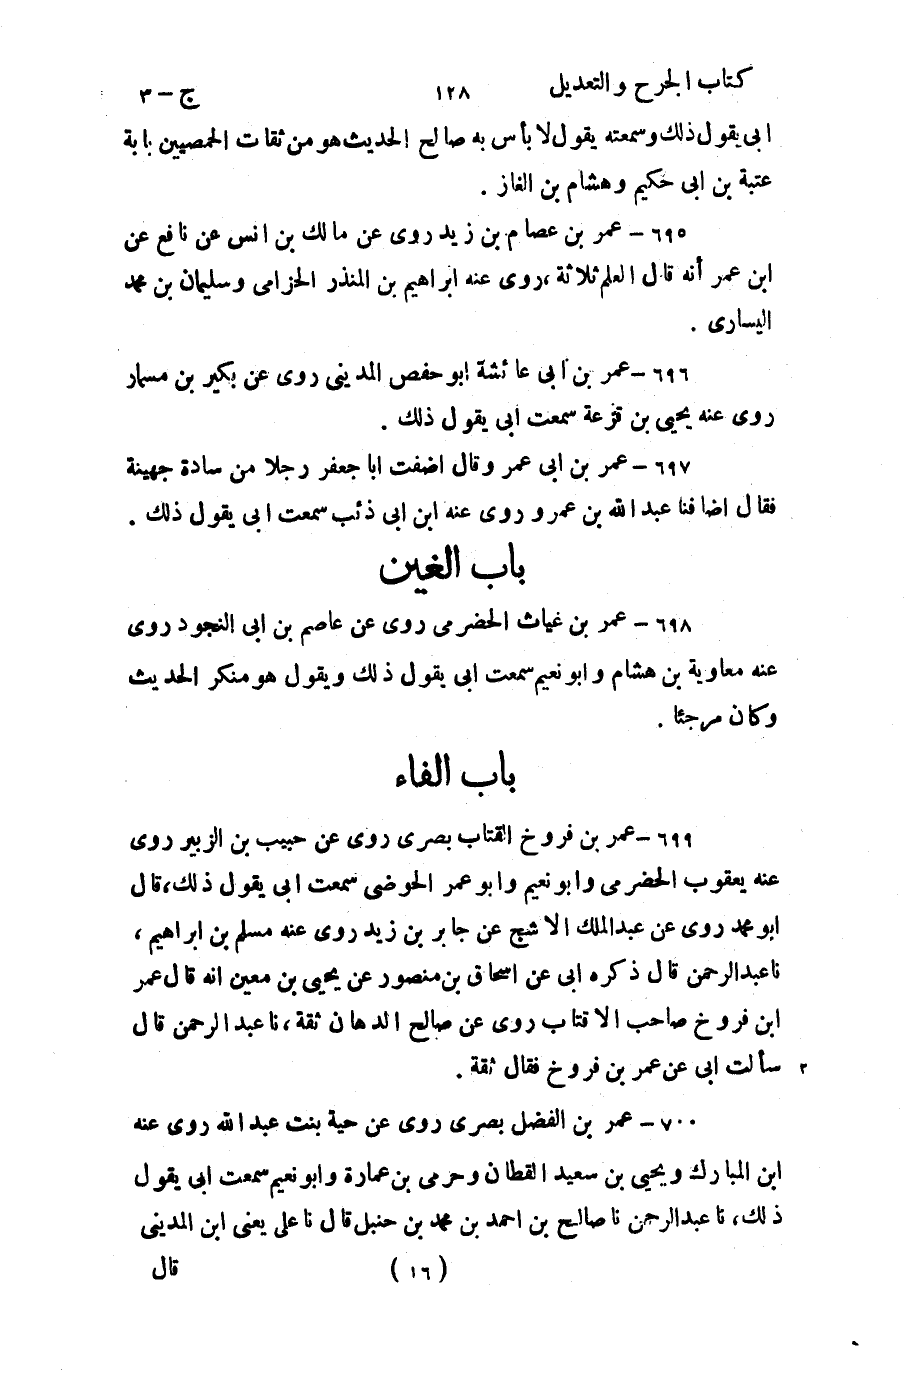 كتاب الجرح والتعديل ١٢٨ ج – ٣
ابى يقول ذلك وسمعته يقول لا بأس به صالح الحديث هو من ثقات الحمصيين بابة
عتبة بن ابى حكيم وهشام بن الغاز .
٦٩٥ – عمر بن عصام بن زيد روى عن مالك بن انس عن نافع عن
ابن عمر أنه قال العلم ثلاثة ، روى عنه ابراهيم بن المنذر الحزامى وسليمان بن محمد
اليسارى .
٦٩٦ – عمر بن ابى عائشة ابو حفص المدينى روى عن بكير بن مسمار
روى عنه يحيى بن قزعة سمعت ابى يقول ذلك .
٦٩٧ – عمر بن ابى عمر وقال اضفت ابا جعفر رجلا من سادة جهينة
فقال اضافنا عبد الله بن عمرو روى عنه ابن ابى ذئب سمعت ابى يقول ذلك .
باب الغين
٦٩٨ – عمر بن غياث الحضرمى روى عن عاصم بن ابى النجود روى
عنه معاوية بن هشام وابو نعيم سمعت ابى يقول ذلك ويقول هو منكر الحديث
وكان مرجئا .
باب الفاء
٦٩٩ – عمر بن فروخ القتاب بصرى روى عن حبيب بن الزبير روى
عنه يعقوب الحضرمى وابو نعيم وابو عمر الحوضى سمعت ابى يقول ذلك ، قال
ابو محمد روى عن عبد الملك الاشج عن جابر بن زيد روى عنه مسلم بن ابراهيم ،
نا عبد الرحمن قال ذكره ابى عن اسحاق بن منصور عن يحيى بن معين انه قال عمر
ابن فروخ صاحب الاقتاب روى عن صالح الدهان ثقة ، نا عبد الرحمن قال
سألت ابى عن عمر بن فروخ فقال ثقة . ٢
٧٠٠ – عمر بن الفضل بصرى روى عن حية بنت عبد الله روى عنه
ابن المبارك ويحيى بن سعيد القطان وحرمى بن عمارة وابو نعيم سمعت ابى يقول
ذلك ، نا عبد الرحمن نا صالح بن احمد بن محمد بن حنبل قال نا على يعنى ابن المدينى
(١٦) قال